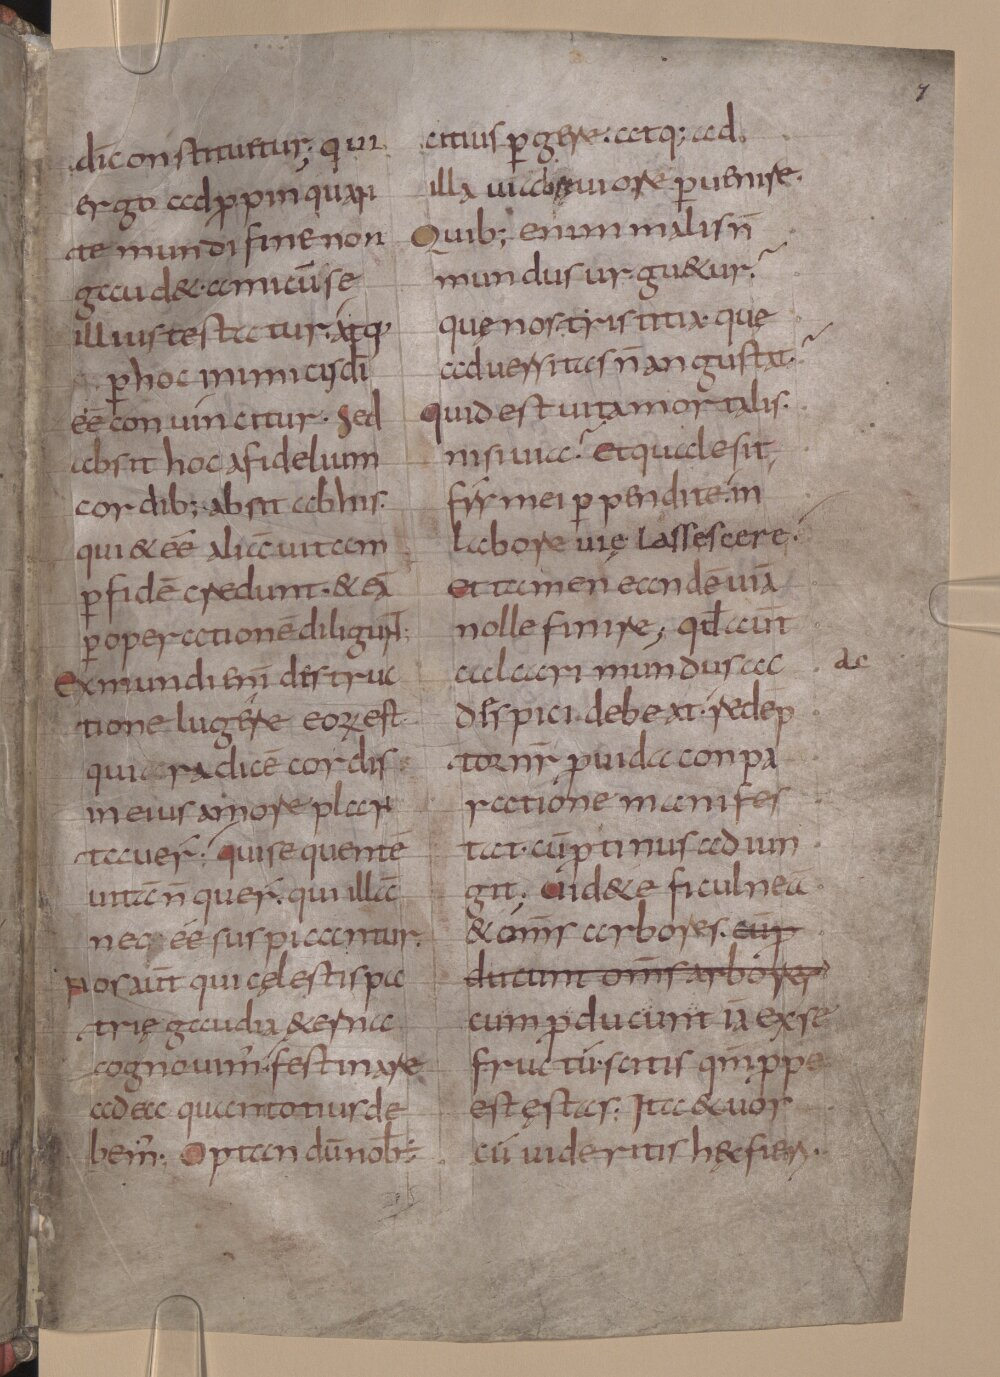 7
di constituetur; qui
ergo adp̱pinquan
te mundi fine non
gaudet. amicū se
illius testatur. atq;
p̱ hoc inimicus di
ēē convincitur. Sed
absit hoc a fidelium
cordib; absit ab his.
qui & ēē aliā uitam
p̱ fidē credunt. & eā
p̱ operationē diligunt;
Ex mundi eni destruc
tione lugere eoꝝ est
qui a radicē cordis
in eius amore plan
tauer. qui sequentē
uitā n̄ quer. qui illā
nec ēē suspicantur.
Nos aut̄ qui cęlestis pa
trię gaudia &erna
cognouim̄. festinare
ad ea quantotius de
bem̄. Optan dū nob̄
citius p̱gere. atq; ad
illa uia breuiore p̱uenire.
Quib; enim malis n̄
mundus urgu&ur.
quę nos tristitia. quę
aduersitas n̄ angustat.
Quid est uita mortalis.
nisi uia. Et quale sit
fr̄r mei p̱pendite. in
labore uię lassescere.
et tamen eandē uiā
nolle finire; qd̄ aut̄
calcari mundus ac
ac
dispici. debeat. redēp
tor nr̄ p̱uida conpa
ratione manifes
tat. cū p̱tinus adiun
git. Uid&e ficulneā
& om̄s arbores. cū p̱
ducunt om̄s arbores
cum p̱ducunt iā ex se
fructū. scitis qm̄ p̱pe
est ęstas. Ita & uos
cū uideritis hęc fieri.